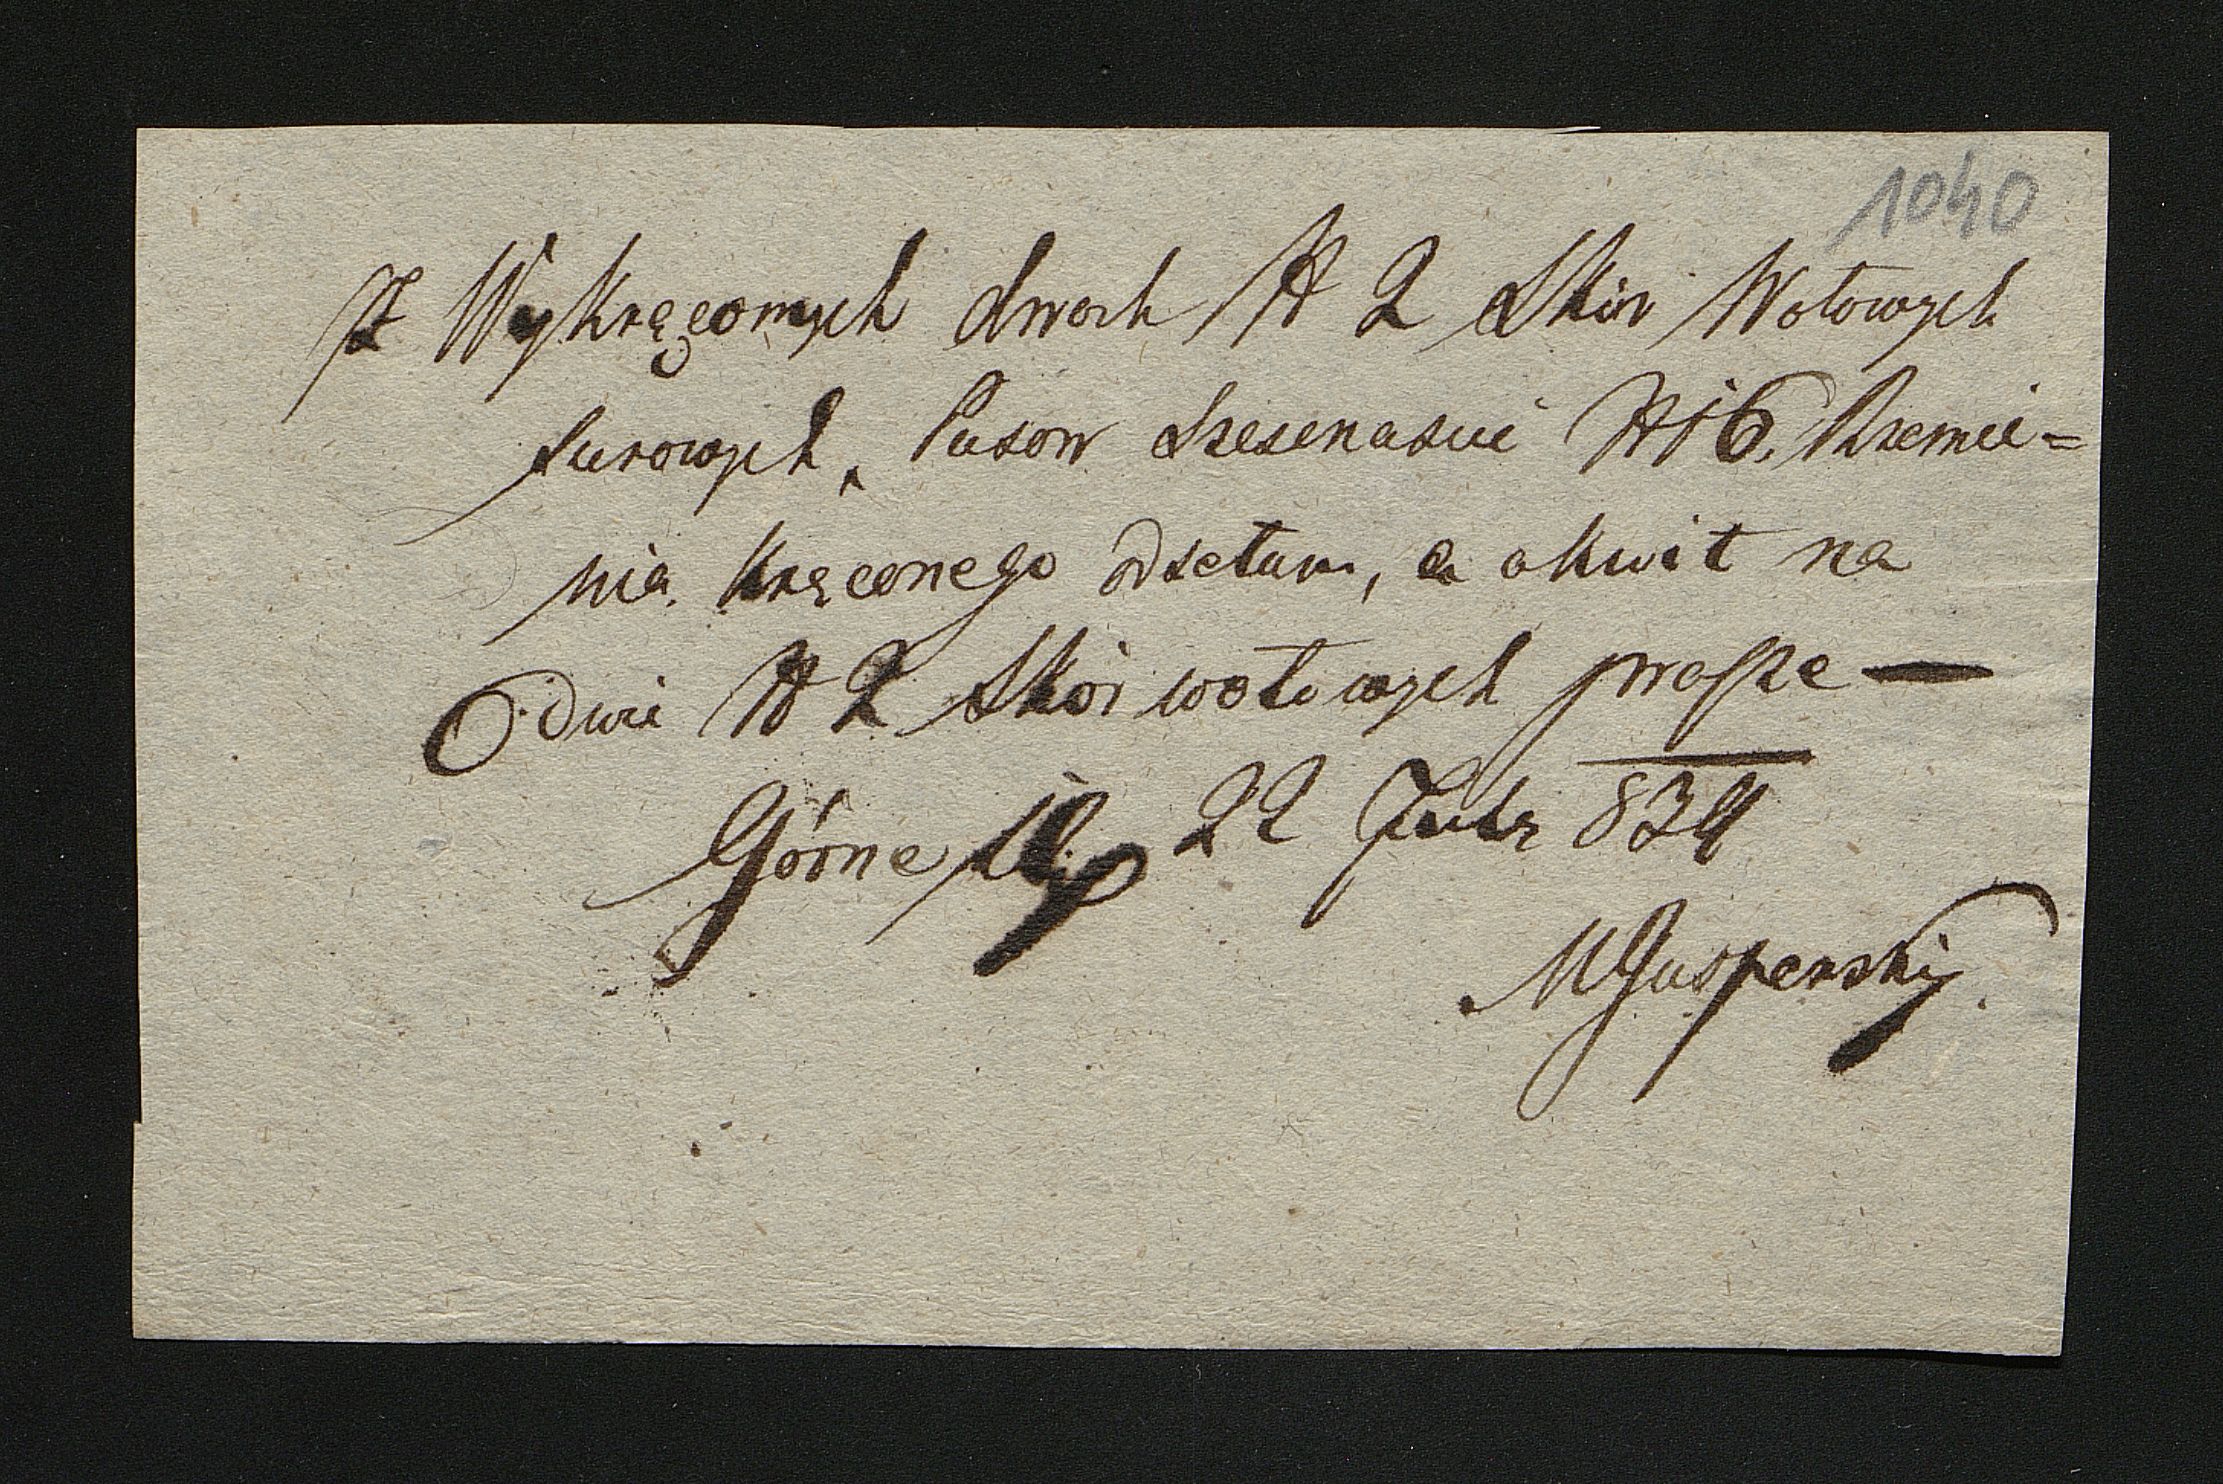 1040
Z Wykręconych dwoch N 2 Skór Wołowych
surowych, Pasow szesenascie N 16. Rzemie=
nia Kręconego odsełam, a okwit na
Dwie N 2 Skór wołowych proszę —
Górne 22 834
MGasperski